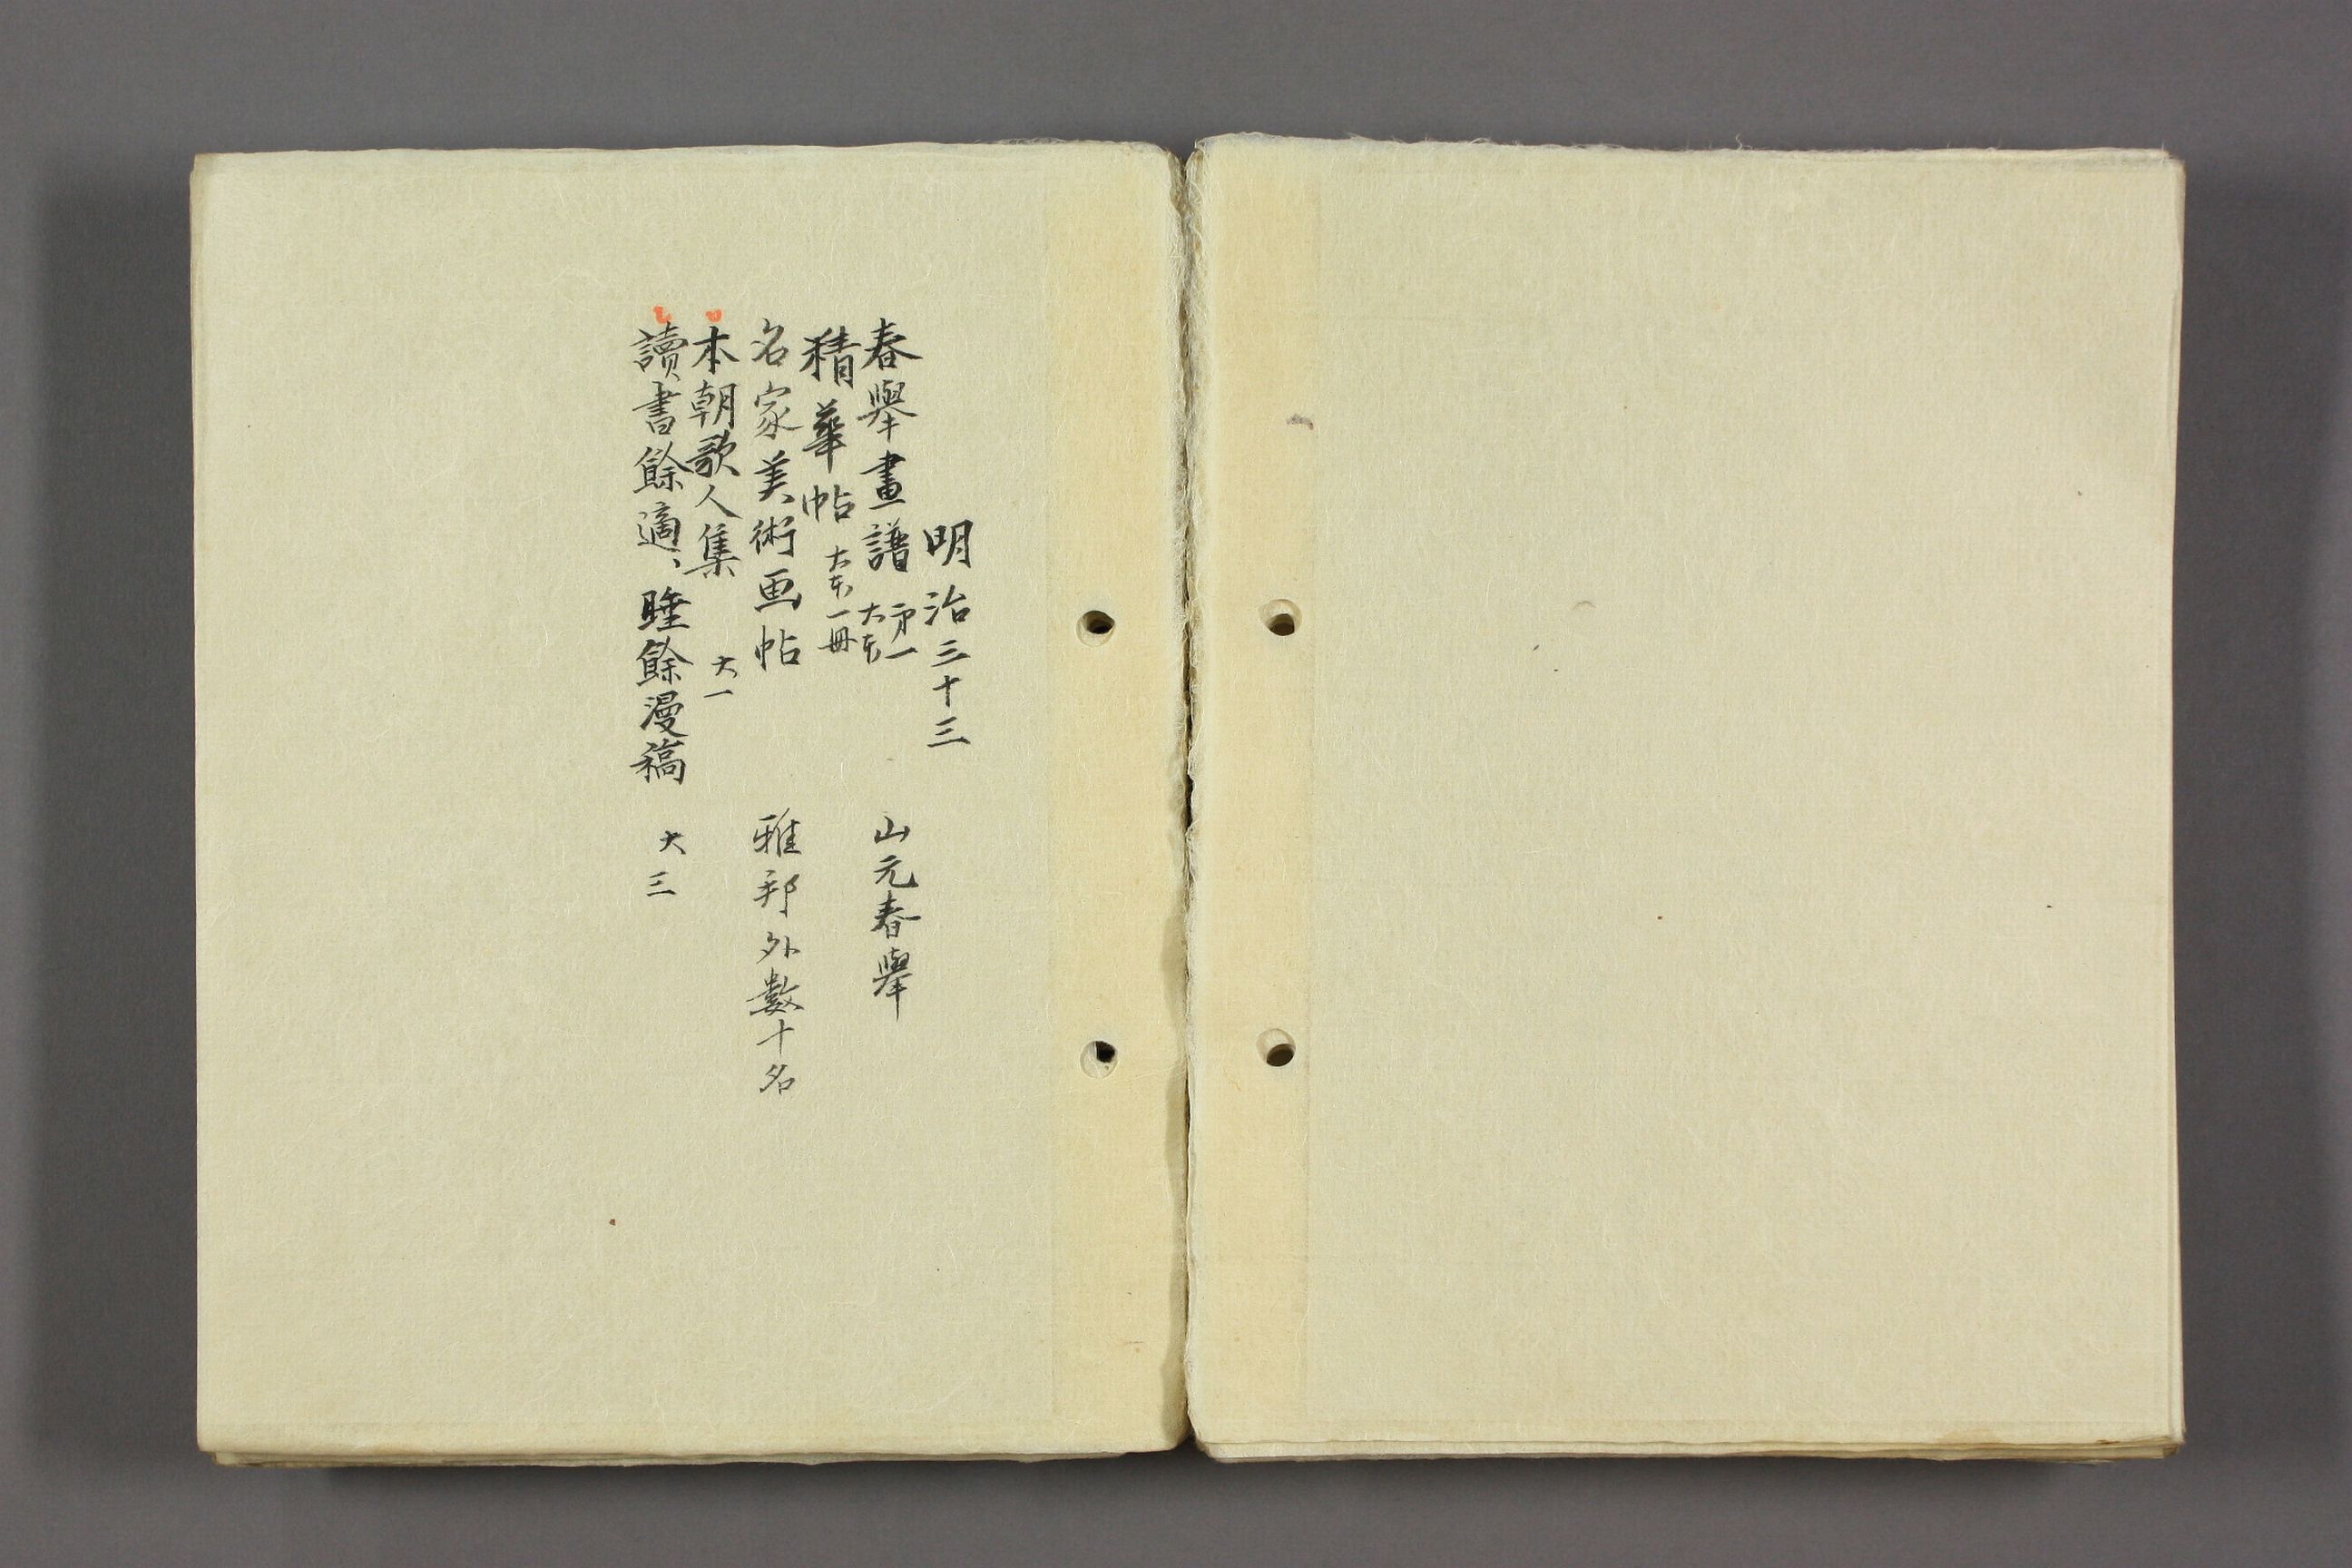 明治三十三
春擧畫譜 第一 大本 山元春擧
精華帖 大本一冊
名家美術画帖 雅邦外數十名
本朝歌人集 大一
讀書餘適、睡餘漫稿 大三